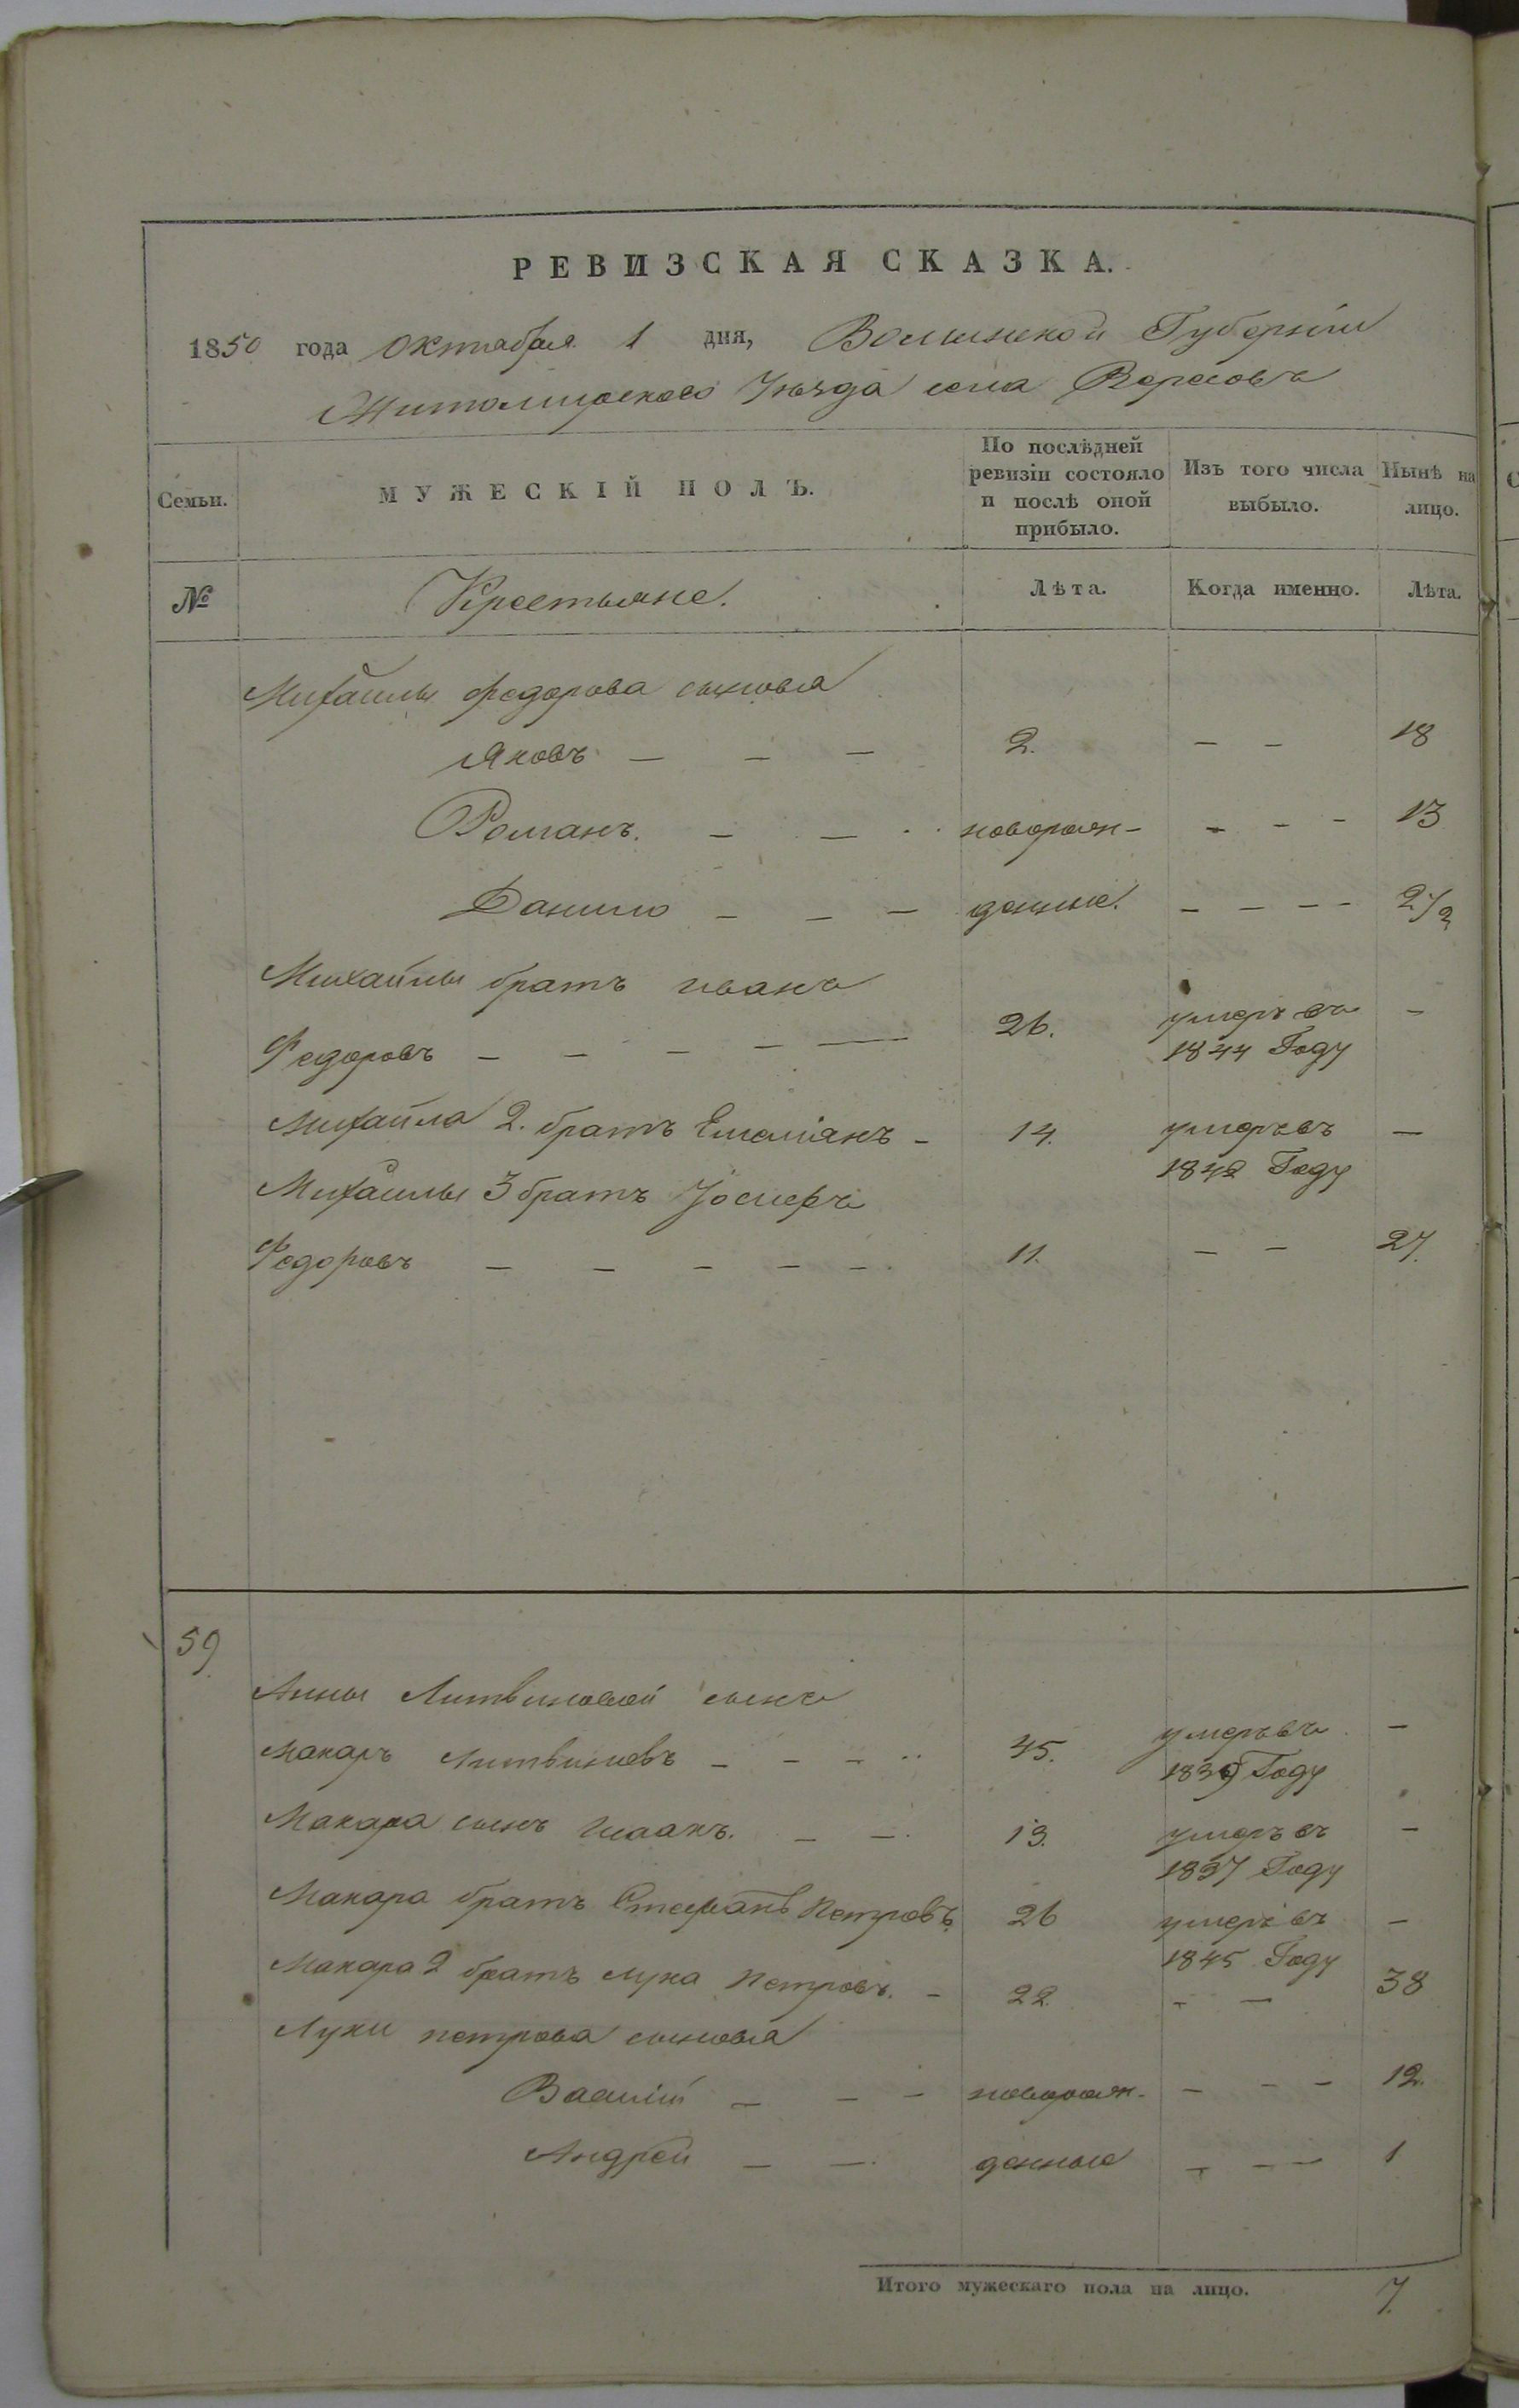 РЕВИЗСКАЯ СКАЗКА.
1850 года Октября 1 дня, Волынской Губернии
Житомирского Уезда села Вересовъ
Семьи. МУЖЕСКІЙ ПОЛЪ. По послѣдней ревизіи состояло и послѣ оной прибыло. Изъ того числа выбыло. Нынѣ на лицо.
№ Крестьяне. Лѣта. Когда именно. Лѣта.
Михайлы Федорова сыновья
Яковъ — — — 2. — — 18
Романъ. — — новорож- — — — 13
Данило — — — денные. — — — — 2 1/2
Михайлы братъ иванъ
Федоровъ — — — — — 26. умеръ въ 1844 Году —
Михайла 2. братъ Емелианъ — 14. умеръ въ 1842 Году —
Михайлы 3 братъ Иосифъ
Федоровъ — — — — — 11. — — 27.
59
Анны Литвиновой сынъ
Макаръ Литвиновъ — — — 45. умеръ въ 1839 Году —
Макара сынъ Иванъ. — — 13. умеръ въ 1837 Году —
Макара братъ Стефанъ Петровъ 26 умеръ въ 1845 Году —
Макара 2 братъ Лука Петровъ. — 22. — — 38
Луки петрова сыновья
Василій — — — новорож- — — — 12.
Андрей — — денные — — — 1
Итого мужескаго пола на лицо. 7.